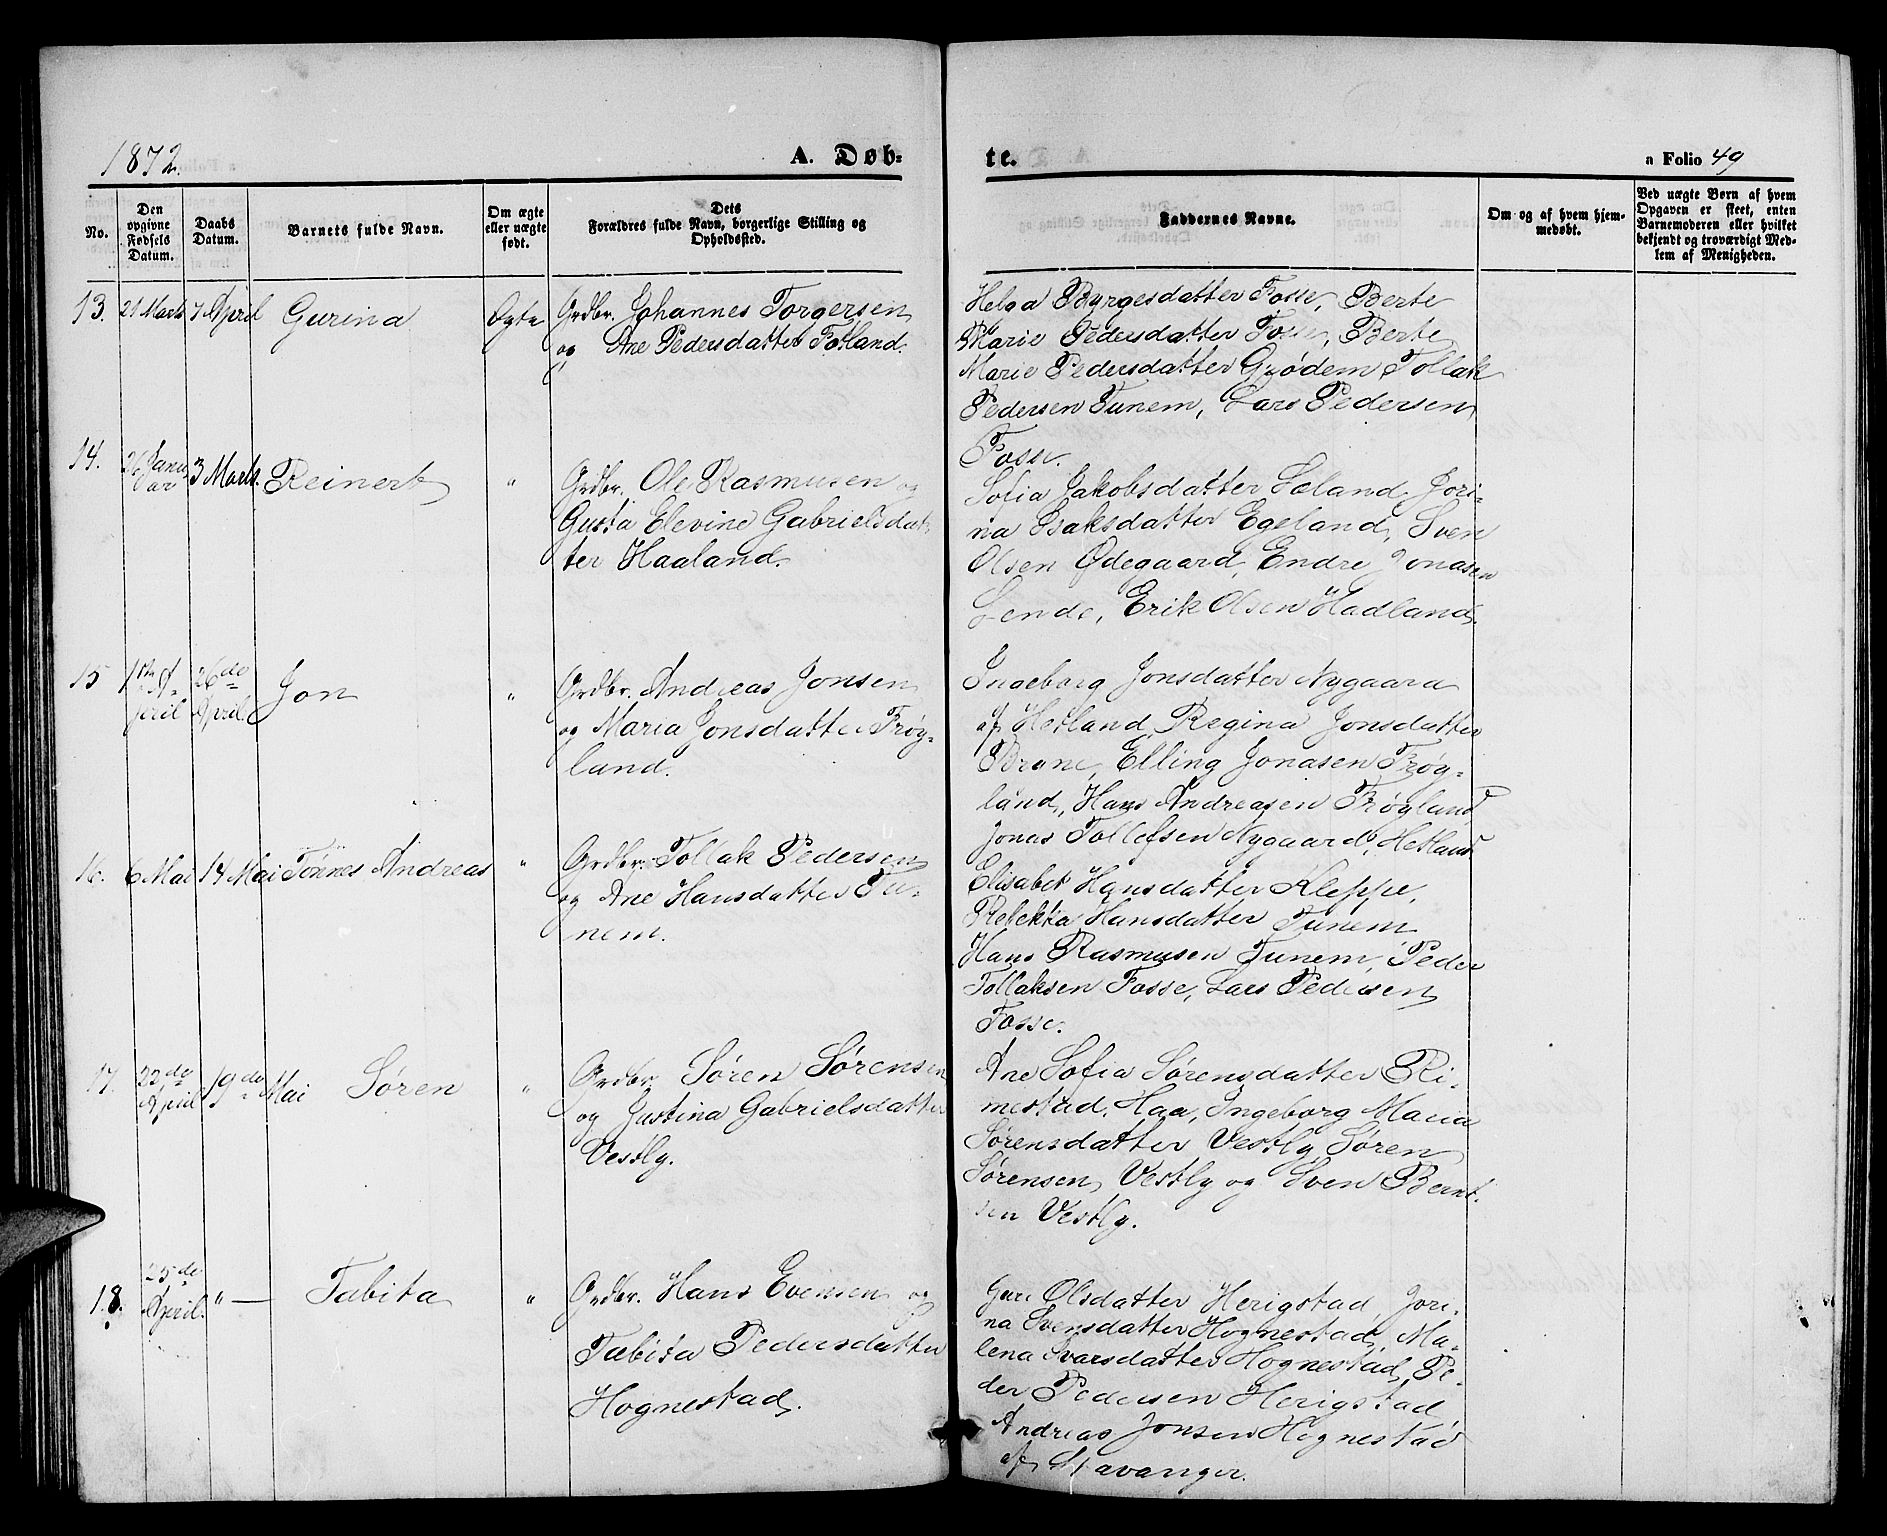 1872. A. Døb-
te. a Folio 49
No.
Den opgivne Fødsels Datum.
Daabs Datum.
Barnets fulde Navn.
Om ægte eller uægte født.
Dets Forældres fulde Navn, borgerlige Stilling og Opholdssted.
Faddernes Navne.
Om og af hvem hjemmedøbt.
Ved uægte Børn af hvem Opgaven er skeet, enten Barnemoderen eller hvilket bekjendt og troværdigt Medlem af Menigheden.
13. 21 Marts 7 April Gurina Ægte Grdbr. Johannes Torgersen
og Ane Pedersdatter Fotland.
Helga Børgesdatter Fosse, Berte
Marie Pedersdatter Fosse, Berte
Marie Pedersdatter Grødem, Tollak
Pedersen Tunem, Lars Pedersen
Fosse.
14. 26 Janu
ar 3 Marts. Reinert " Grdbr. Ole Rasmusen og
Gusta Elevine Gabrielsdat
ter Haaland.
Sofia Jakobsdatter Leland, Jori-
na Isaksdatter Egeland, Sven
Olsen Ødegaard, Endre Jonasen
Lende, Erik Olsen Hadland.
15 1ste A-
pril 26de
April. Jon " Grdbr. Andreas Jonsen
og Maria Jonsdatter Frøy-
land.
Ingeborg Jonsdatter Nygaard
af Hetland, Regina Jonsdatter
Brone, Elling Jonasen Frøy-
land, Hans Andreasen Frøyland,
Jonas Tollefsen Nygaard, Hetland
16. 6 Mai 14 Mai Tønnes Andreas " Grdbr. Tollak Pedersen
og Ane Hansdatter Tu-
nem.
Elisabet Hansdatter Kleppe,
Rebekka Hansdatter Tunem
Hans Rasmusen Tunem, Peder
Tollaksen Fosse, Lars Pedersen
Fosse.
17. 22de
April 19de Mai Søren " Grdbr. Søren Sørensen
og Justina Gabrielsdatter
Vestly.
Ane Sofia Sørensdatter Ri-
mestad, Haa, Ingeborg Maria
Sørensdatter Vestly, Søren
Sørensen, Vestly og Sven Bernt-
sen Vestly.
18. 25de
April. "— Tabita " Grdbr. Hans Evensen og
Tabita Pedersdatter
Hognestad.
Guri Olsdatter Herigstad, Jori-
na Svensdatter Hognestad, Ma-
lena Ivarsdatter Hognestad, Pe-
der Pedersen Herigstad
Andreas Jonsen Hognestad
af Stavanger.